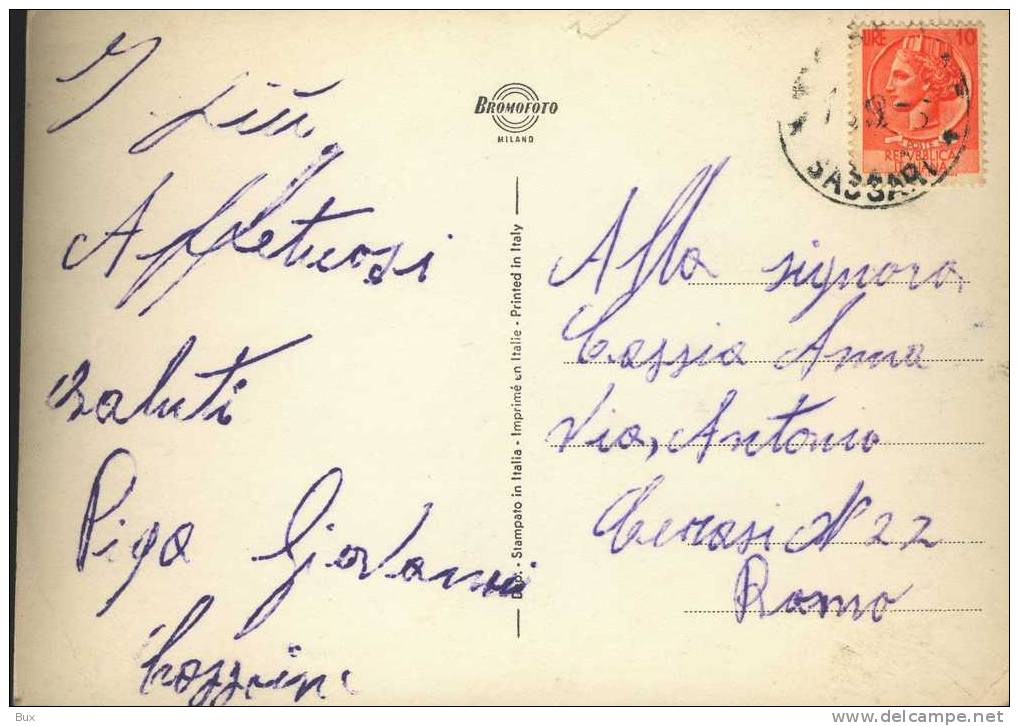 I più
Affettuosi
saluti
Piga Giovanni
BROMOFOTO
MILANO
Dep. - Stampato in Italia - Imprimé en Italie - Printed in Italy
LIRE 10
POSTE
REPVBBLICA
ITALIANA
SASSARI
Alla signora,
Cassia Anna
Via, Antonio
Cerasi N 22
Roma
Bux
www.delcampe.net